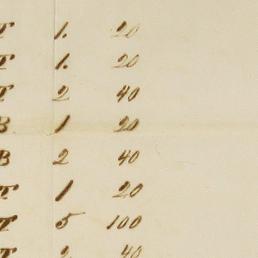 T 1. 20
T 1. 20
T 2 40
B 1 20
B 2 40
T 1 20
T 5 100
T 2 40